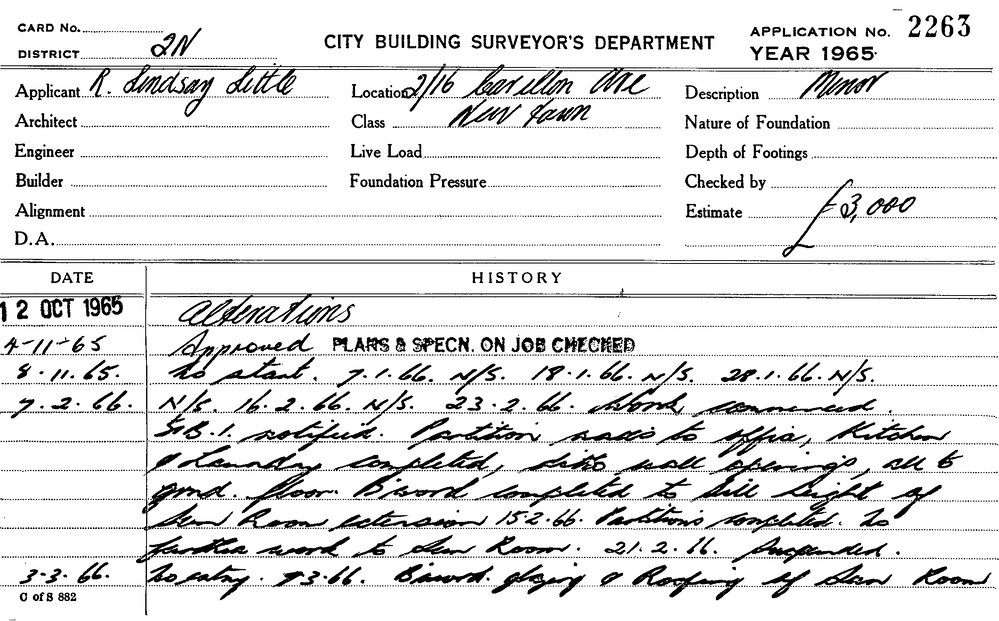 CARD No.
DISTRICT 2N
CITY BUILDING SURVEYOR'S DEPARTMENT
APPLICATION No. 2263
YEAR 1965
Applicant R. Lindsay Little
Location 2/16 Carillon Ave
Description Minor
Architect
Class New town
Nature of Foundation
Engineer
Live Load
Depth of Footings
Builder
Foundation Pressure
Checked by
Alignment
Estimate £3,000
D.A.
DATE HISTORY
12 OCT 1965 Alterations
4-11-65 Approved PLANS & SPECN. ON JOB CHECKED
8.11.65. No start. 7.1.66. N/S. 18.1.66. N/S. 28.1.66. N/S.
7.2.66. N/S. 16.2.66. N/S. 23.2.66. Work commenced.
notified. Partition to office, Kitchen
& Laundry completed, ditto wall openings, all to
grnd. floor. B'word completed to sill height of
Sun Room extension 15.2.66. Partitions completed. No
further work to Sun Room. 21.2.66. Suspended.
3-3.66. No entry. 9.3.66. B'word. glazing & Roofing of Sun Room
C of S 882